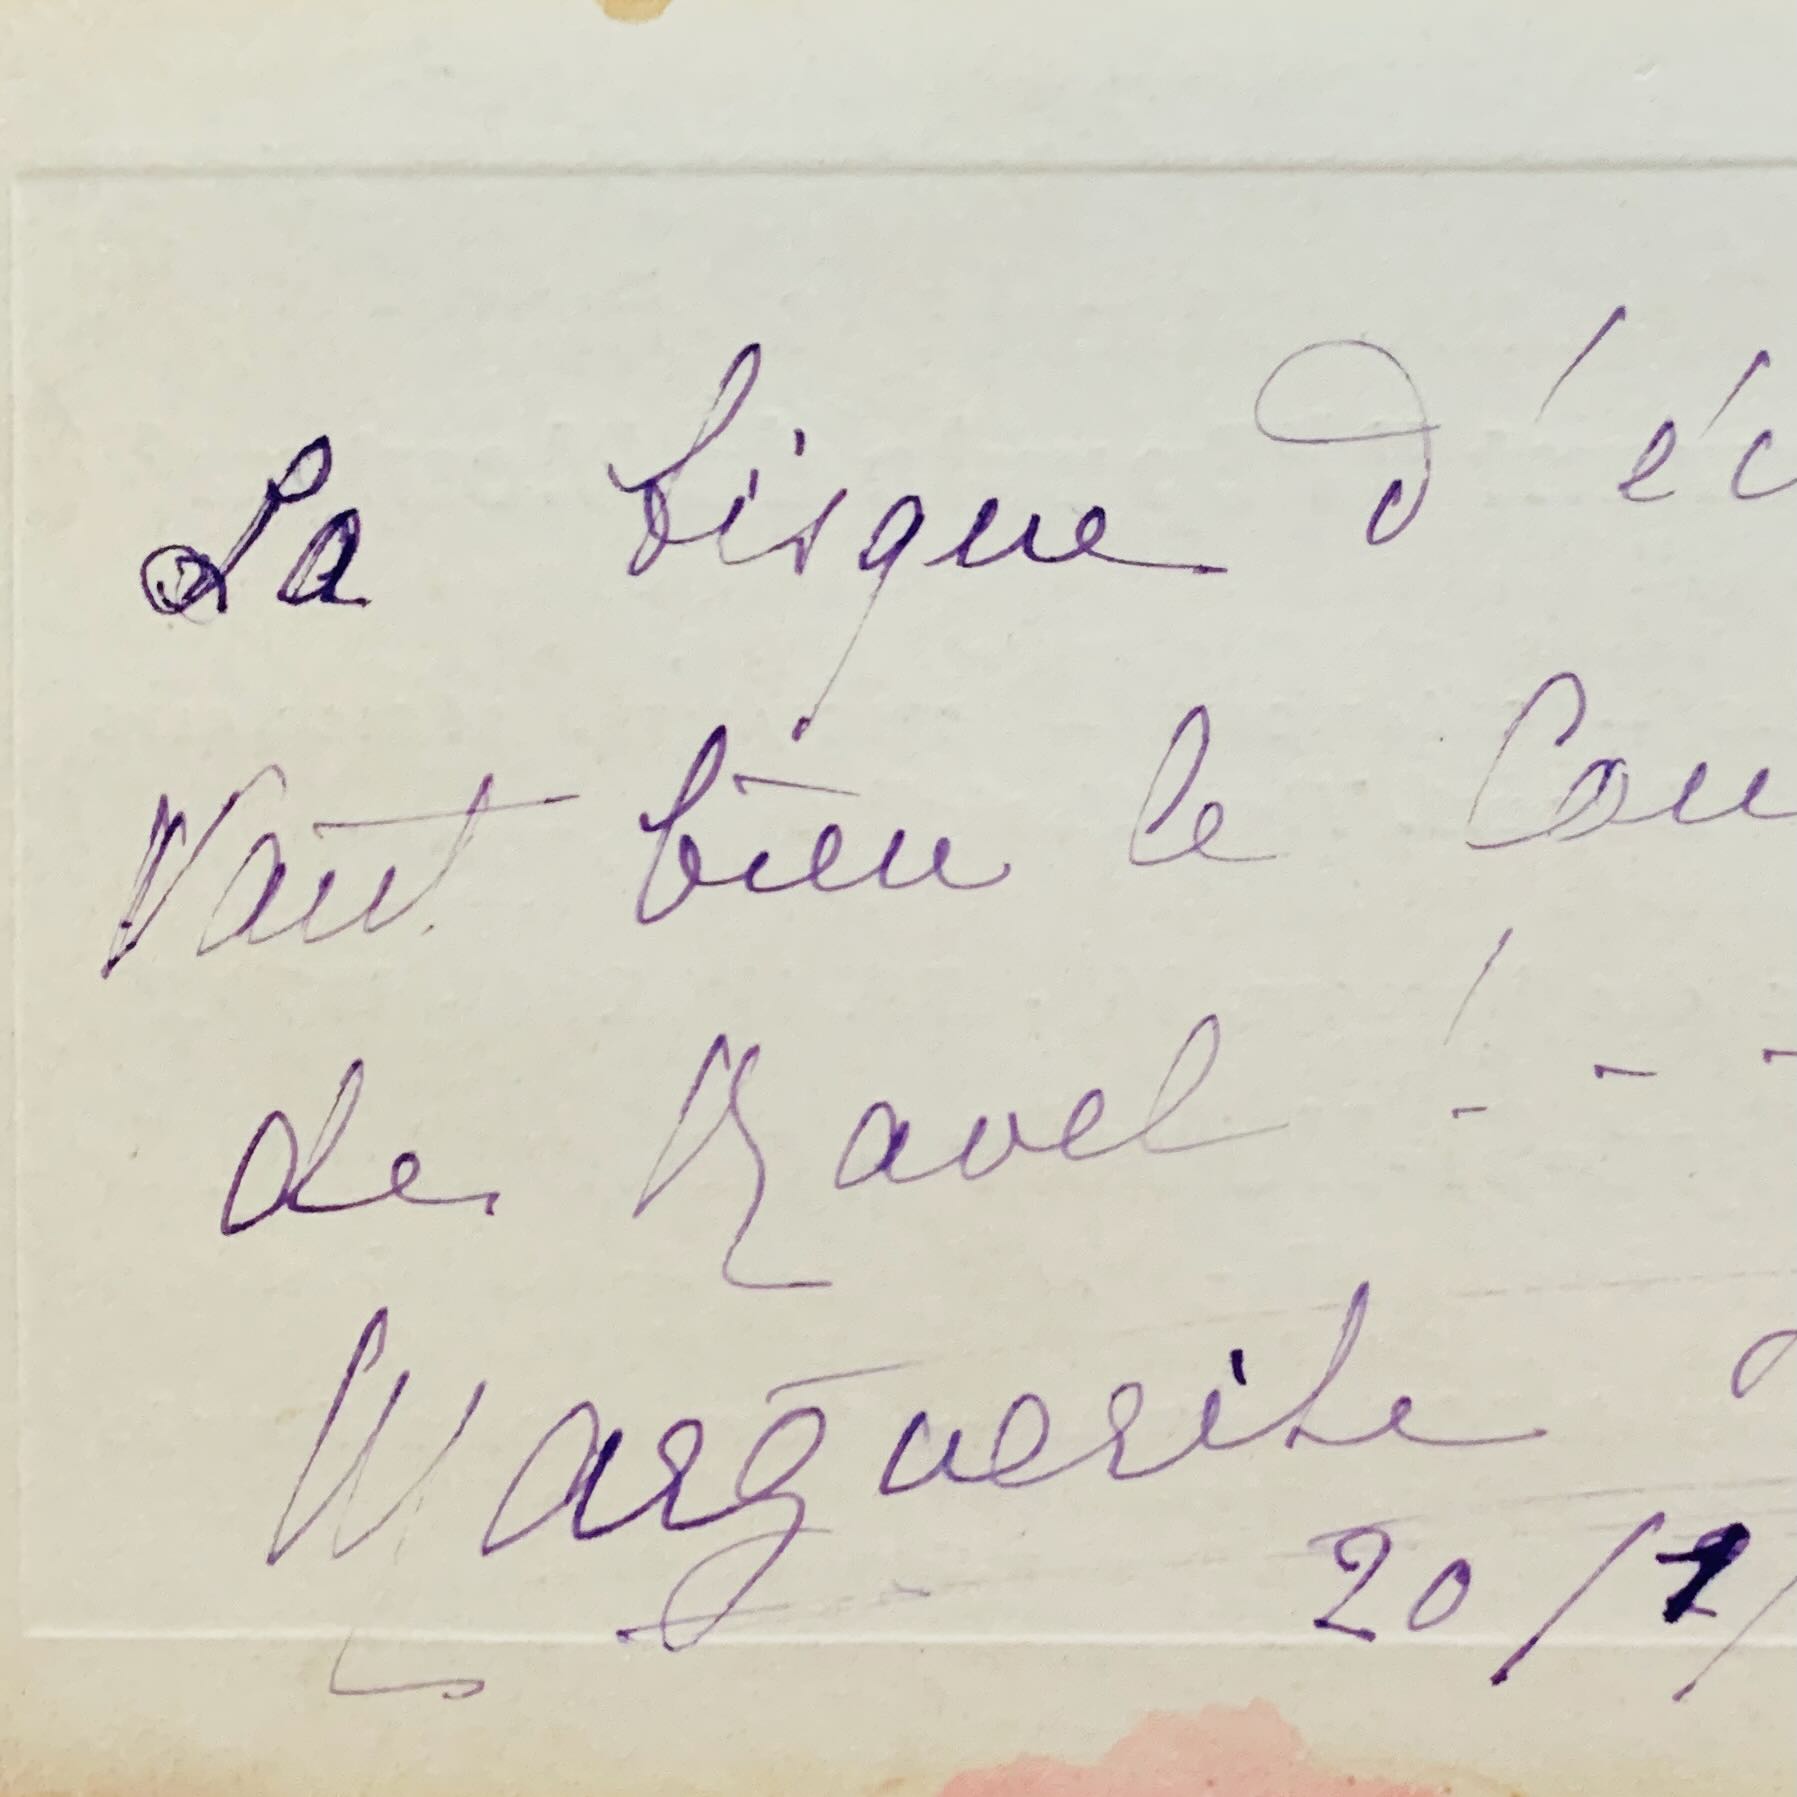 La bisque d'éc
Vaut bien le Con
de Ravel ! - -
Marguerite
20/2/